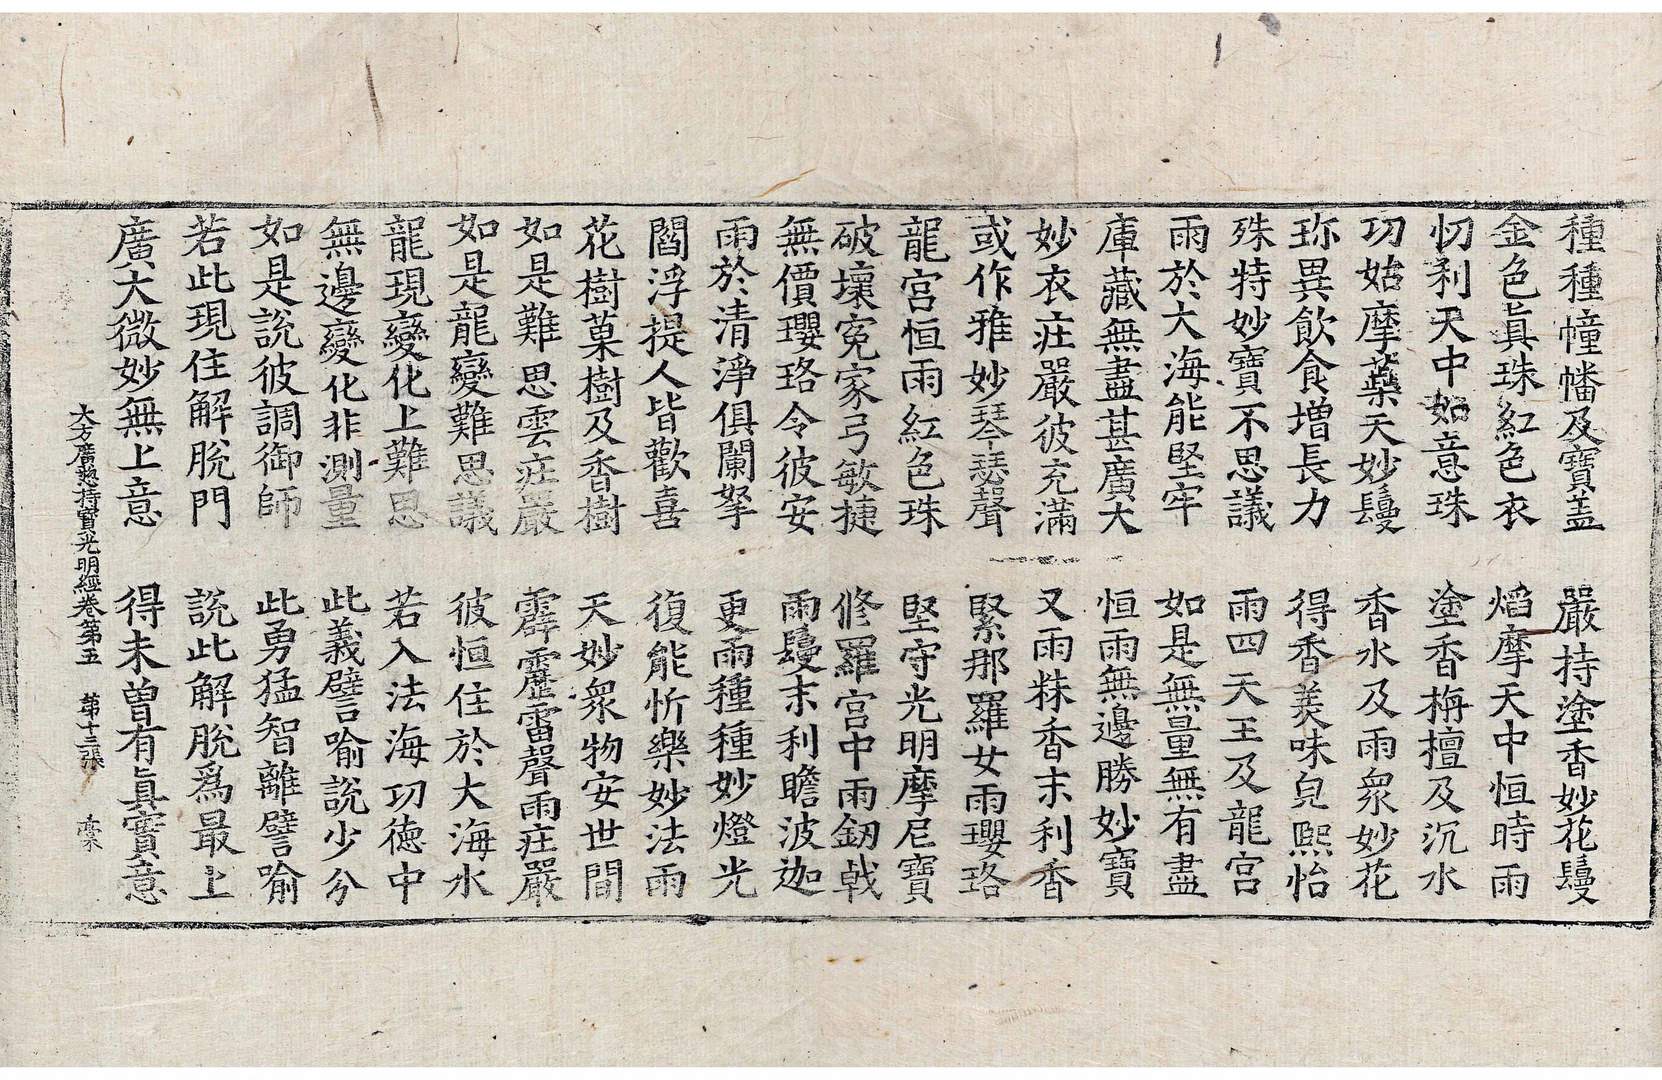 種種幢幡及寶盖　嚴持塗香妙花鬘
金色眞珠紅色衣　焰摩天中恒時雨
忉利天中如意珠　塗香栴檀及沉水
㓛始摩藥天妙鬘　香水及雨衆妙花
珎異飮食增長力　得香美味皃熙怡
殊特妙寶不思議　雨四天王及龍宮
雨於大海能堅牢　如是無量無有盡
庫藏無盡甚廣大　恒雨無邊勝妙寶
妙衣庄嚴彼充滿　又雨粖香末利香
或作雅妙琴瑟聲　緊那羅女雨瓔珞
龍宮恒雨紅色珠　堅守光明摩尼寶
破壞寃家弓敏捷　修羅宮中雨釰戟
無價瓔珞令彼安　雨鬘末利瞻波迦
雨於清淨俱闌拏　更雨種種妙燈光
閻浮提人皆歡喜　復能忻樂妙法雨
花樹菓樹及香樹　天妙衆物安世間
如是難思雲庄嚴　霹靂雷聲雨庄嚴
如是龍變難思議　彼恒住於大海水
龍現變化上難思　若入法海㓛德中
無邊變化非測量　此義譬喻說少分
如是說彼調御師　此勇猛智離譬喻
若此現住解脫門　說此解脫爲最上
廣大微妙無上意　得未曽有眞實意
大方廣惣持寶光明經卷第五　第十三張